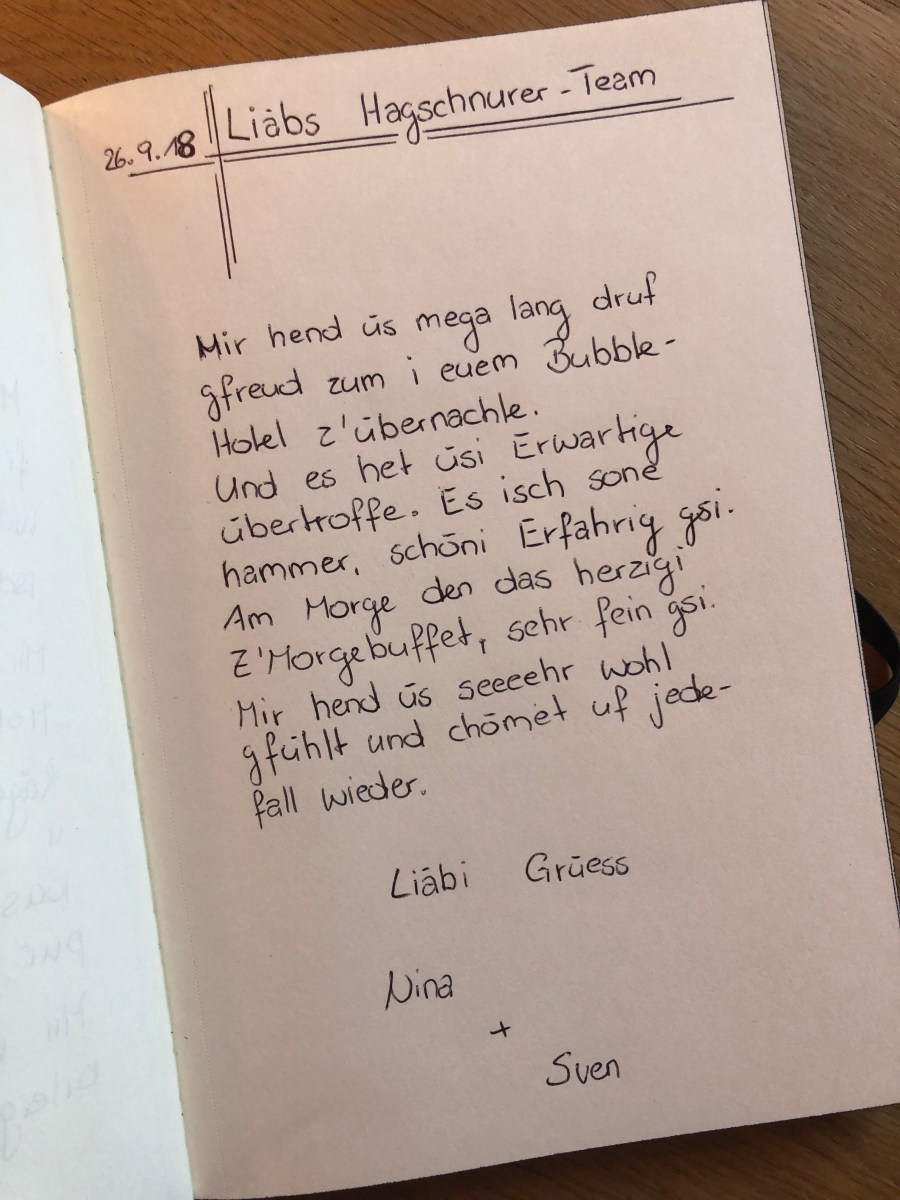 26.9.18 Liäbs Hagschnurer-Team
Mir hend üs mega lang druf
gfreud zum i euem Bubble-
Hotel z'übernachte.
Und es het üsi Erwartige
übertroffe. Es isch sone
hammer, schöni Erfahrig gsi.
Am Morge den das herzigi
Z'Morgebuffet, sehr fein gsi.
Mir hend üs seeeehr wohl
gfühlt und chömet uf jede-
fall wieder.
Liäbi Grüess
Nina
+
Sven